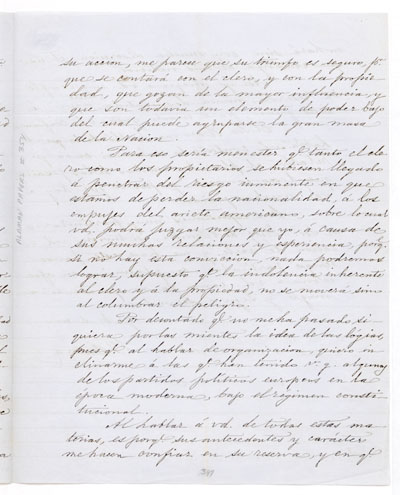 su accion, me parece que su triunfo es seguro, pr.
que se contará con el clero, y con la propie-
dad, que gozan de la mayor influencia, y
que son todavia un elemento de poder bajo
del cual puede agruparse la gran masa
de la Nacion.
Para eso sería menester qe. tanto el cle-
ro como los propietarios se hubiesen llegado
á penetrar del riesgo inminente en que
estamos de perder la nacionalidad, á los
empujes del ariete americano, sobre lo cual
vd. podrá juzgar mejor que yo, á causa de
sus muchas relaciones y esperiencia, porqe.
si no hay esta conviccion nada podremos
lograr, supuesto qe. la indolencia inherente
al clero y á la propiedad, no se moverá sino
al columbrar el peligro.
Por descontado qe. no me ha pasado si
quiera por las mientes la idea de las lógias,
pues qe. al hablar de organizacion, quiero in
clinarme á las qe. han tenido y algunos
de los partidos políticos europeos en la
época moderna, bajo el régimen consti-
tucional.
Al hablar á vd. de todas estas ma
terias, es porqe. sus antecedentes y carácter
me hacen confiar en su reserva, y en qe.